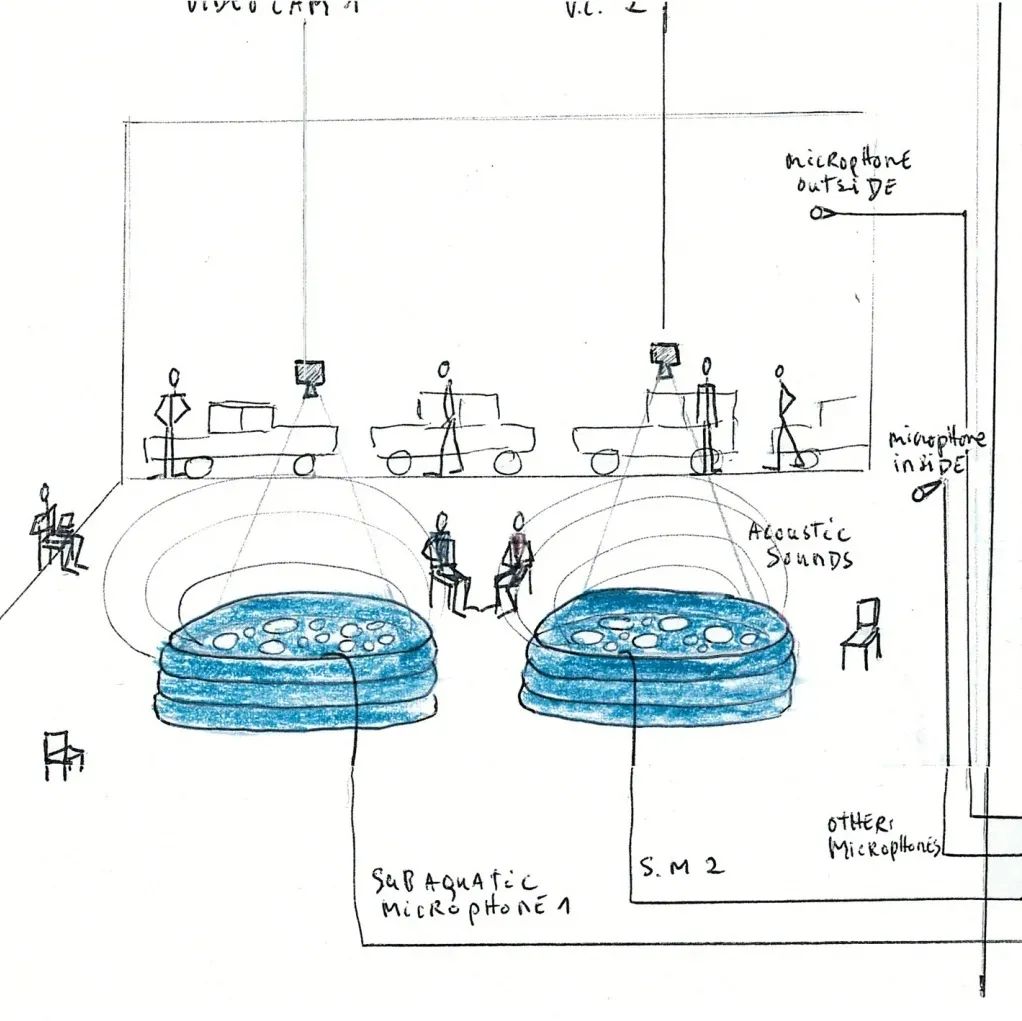 VIDEO CAM 1
V.C. 2
microphone
outside
microphone
inside
Acoustic
Sounds
OTHER:
MicRopHoNES
SUBAQUATIC
MICROPHONE 1
S.M 2